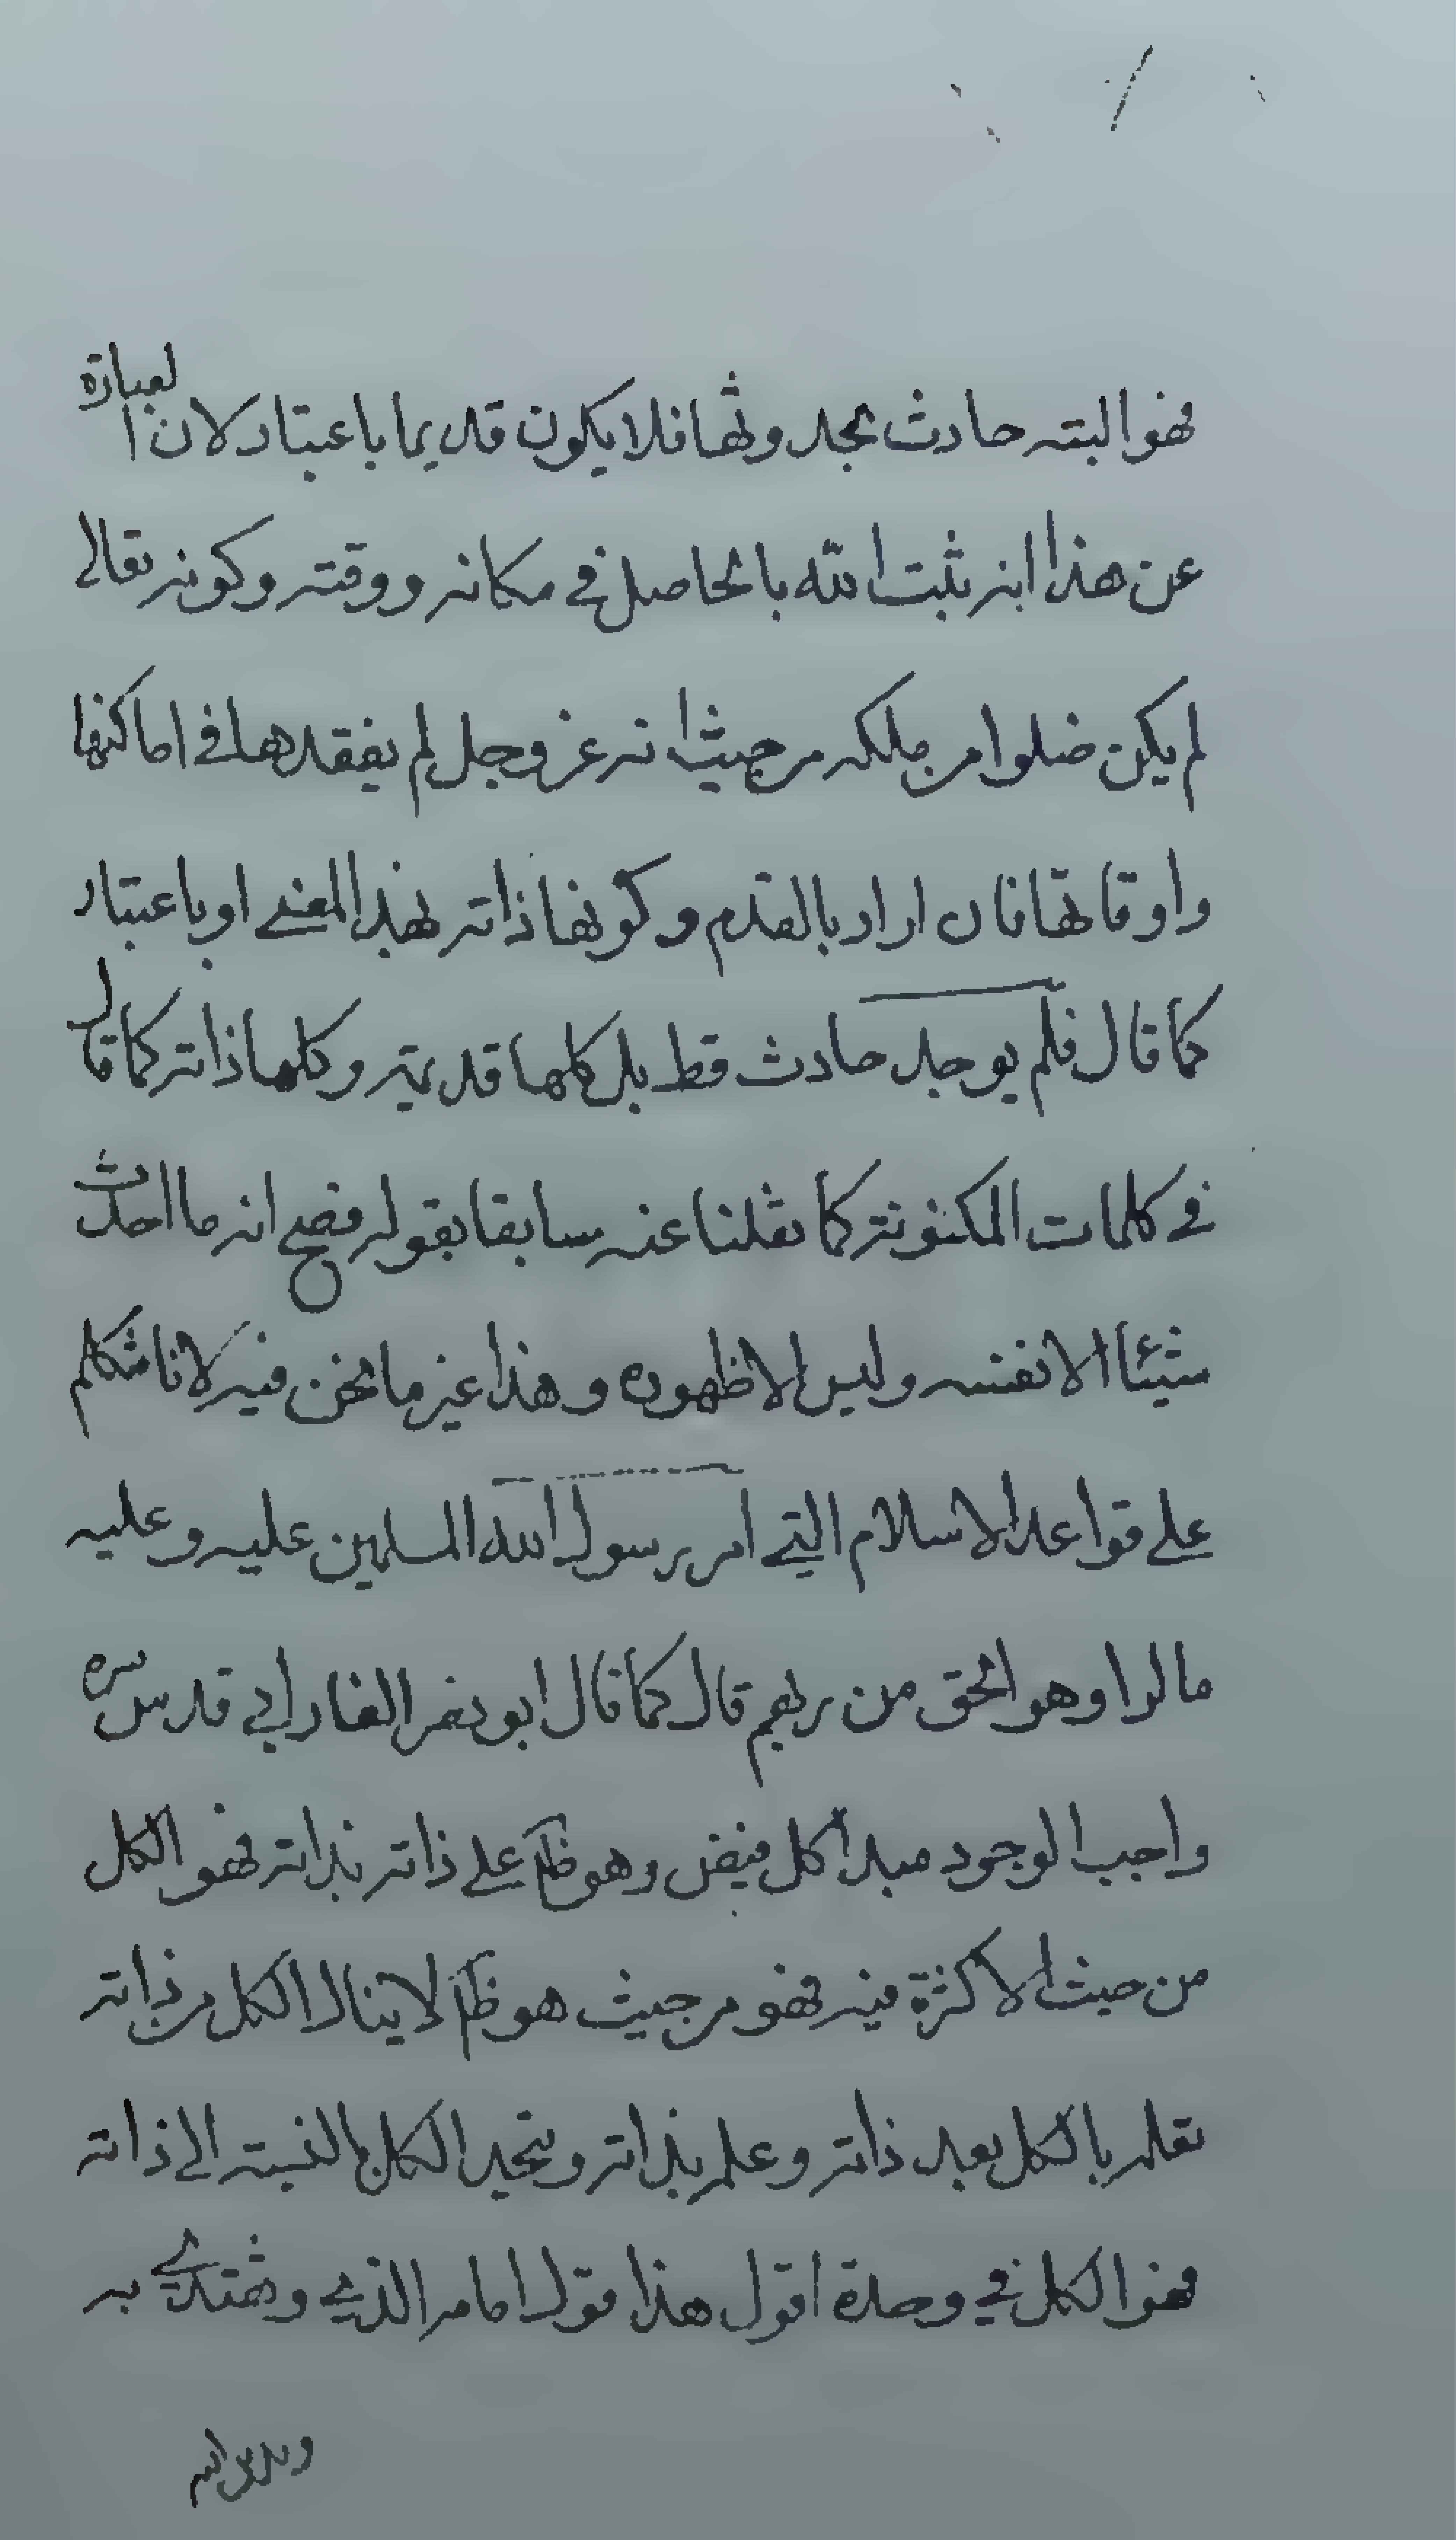 فهو البته حادث بجد وثها فلا يكون قديما باعتبار لان العبارة
عن هذا انه يثبت الله بالحاصل في مكانه ووقته وكونه تعالى
لم يكن خلوا من ملكه من حيث انه عز وجل لم يفقدها في اماكنها
واوقاتها فان اراد بالقدم وكونها ذاته بهذا المعنى او باعتبار
كما قال فلم يوجد حادث قط بل كلها قديمة وكلها ذاته كما قال
في كلمات المكنونة كما نقلنا عنه سابقا بقوله فصح انه ما احدث
شيئا الا نفسه وليس الا ظهوره وهذا غير ما نحن فيه لانا نتكلم
على قواعد الاسلام التي امر رسول الله المسلمين عليه وعليه
ما لدا وهو الحق من ربهم قال كما قال ابو نصر الفارابي قدس سره
واجب الوجود مبدا كل فيض وهو ظاهر على ذاته بذاته فهو الكل
من حيث لا كثرة فيه فهو من حيث هو ظاهر لا ينال الكل من ذاته
بعلمه بالكل بعد ذاته وعلمه بذاته ويتحد الكل بالنسبة الى ذاته
فهو الكل في وحدة اقول هذا قول امامه الذي يقتدي به